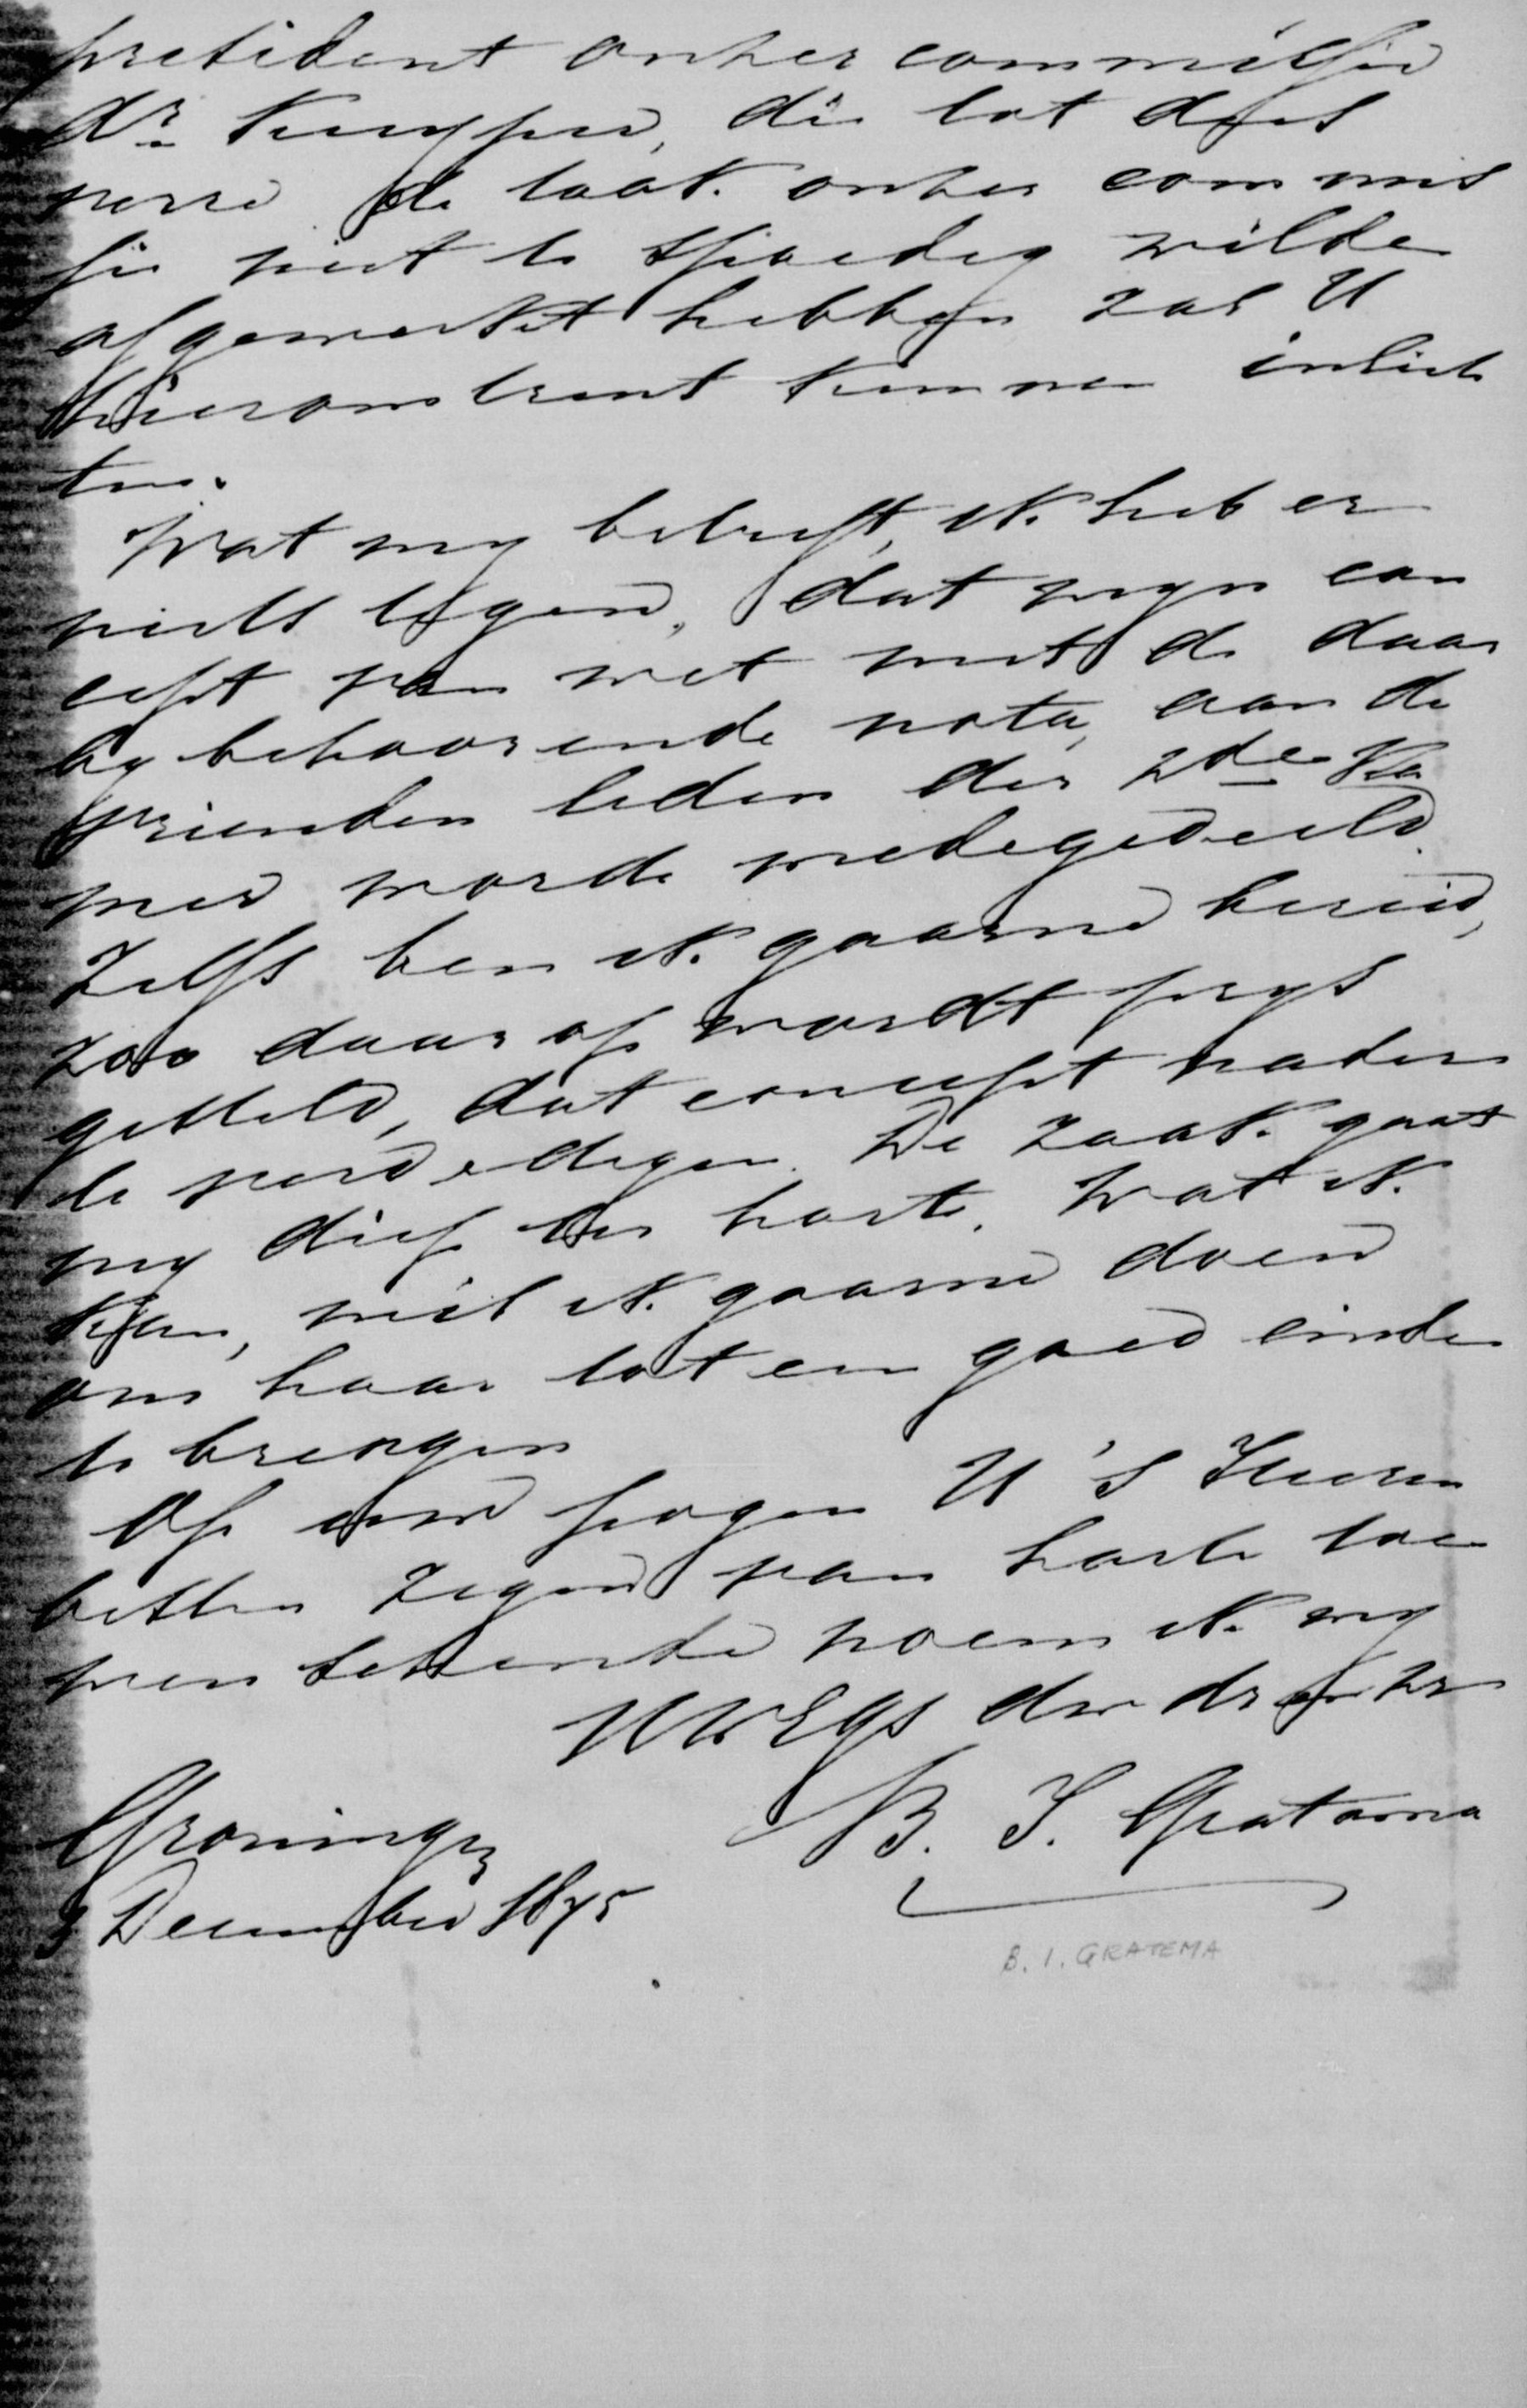 president onzer commissie
Dr Kuyper, die tot dus
verre de taak onzer commis
sie niet te spoedig wilde
afgewerkt hebben zal U
hieromtrent kunnen inlich
ten.
Wat my betreft, ik heb er
niets tegen, dat myn con
cept van wet met de daar
by behoorende nota, aan de
vrienden leden der 2de Ka
mer worde medegedeeld.
Zelfs ben ik gaarne bereid,
zoo daar op wordt prys
gesteld, dat concept nader
te verdedigen. De zaak gaat
my diep ter harte. Wat ik
kan, wil ik gaarne doen
om haar tot een goed einde
te brengen
Op uw pogen U 's Heeren
besten zegen van harte toe
wenschende noem ik my
UWEGs dw dr en vr
B. J. Gratama
Groningen
3 December 1875
B. I. GRATEMA